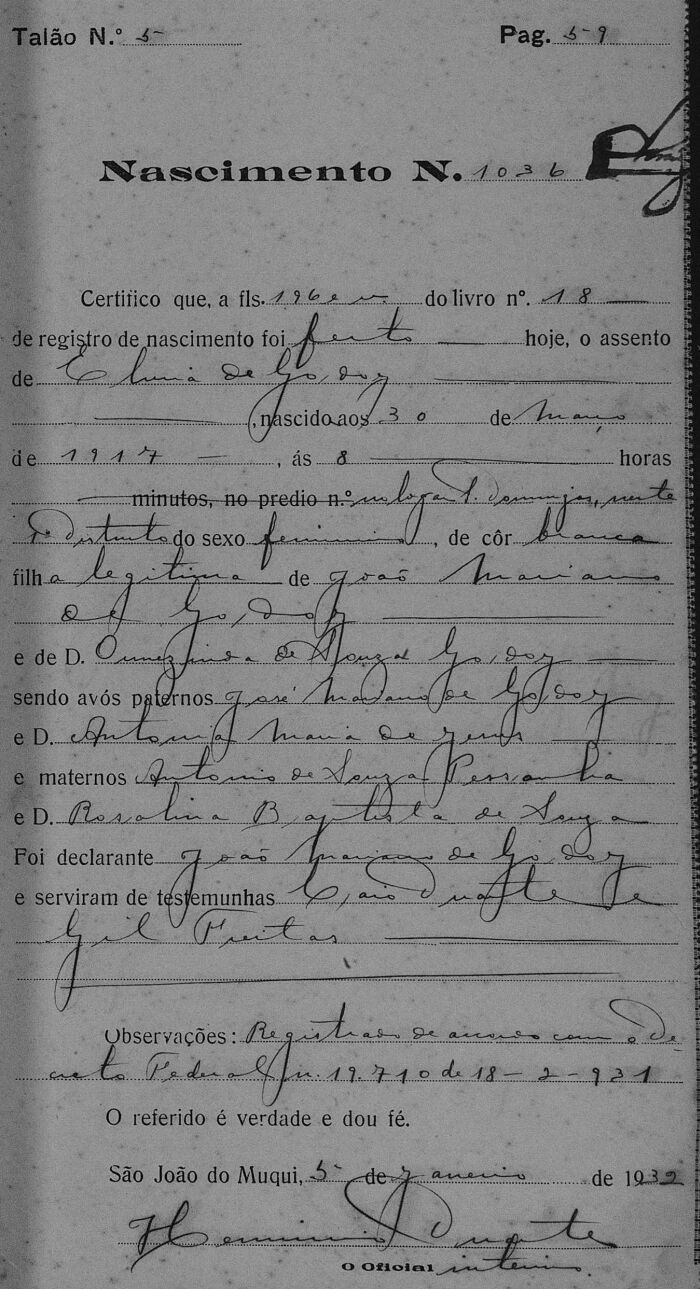 Talão N.º 5 Pag. 59
Nascimento N. 1036
Certifico que, a fls. 196 e v. do livro nº. 18
de registro de nascimento foi feito hoje, o assento
de de Godoy
, nascido aos 30 de Março
de 1917, ás 8 horas
minutos, no predio n.º no lugar S. Domingos, neste
1º Districto do sexo feminino, de côr branca
filha legitima de João Mariano
de Godoy
e de D. Oumezinda de Souza Godoy
sendo avós paternos José Mariano de Godoy
e D. Antonia Maria de Jesus
e maternos Antonio de Souza Pessanha
e D. Rosalina Baptista de Souza
Foi declarante João Mariano de Godoy
e serviram de testemunhas Caio Duarte e
Gil Freitas
Observações: Registrado de accordo com o De-
creto Federal n. 19.710 de 18-2-931
O referido é verdade e dou fé.
São João do Muqui, 5 de Janeiro de 1932
Herminio Duarte
O Oficial interino